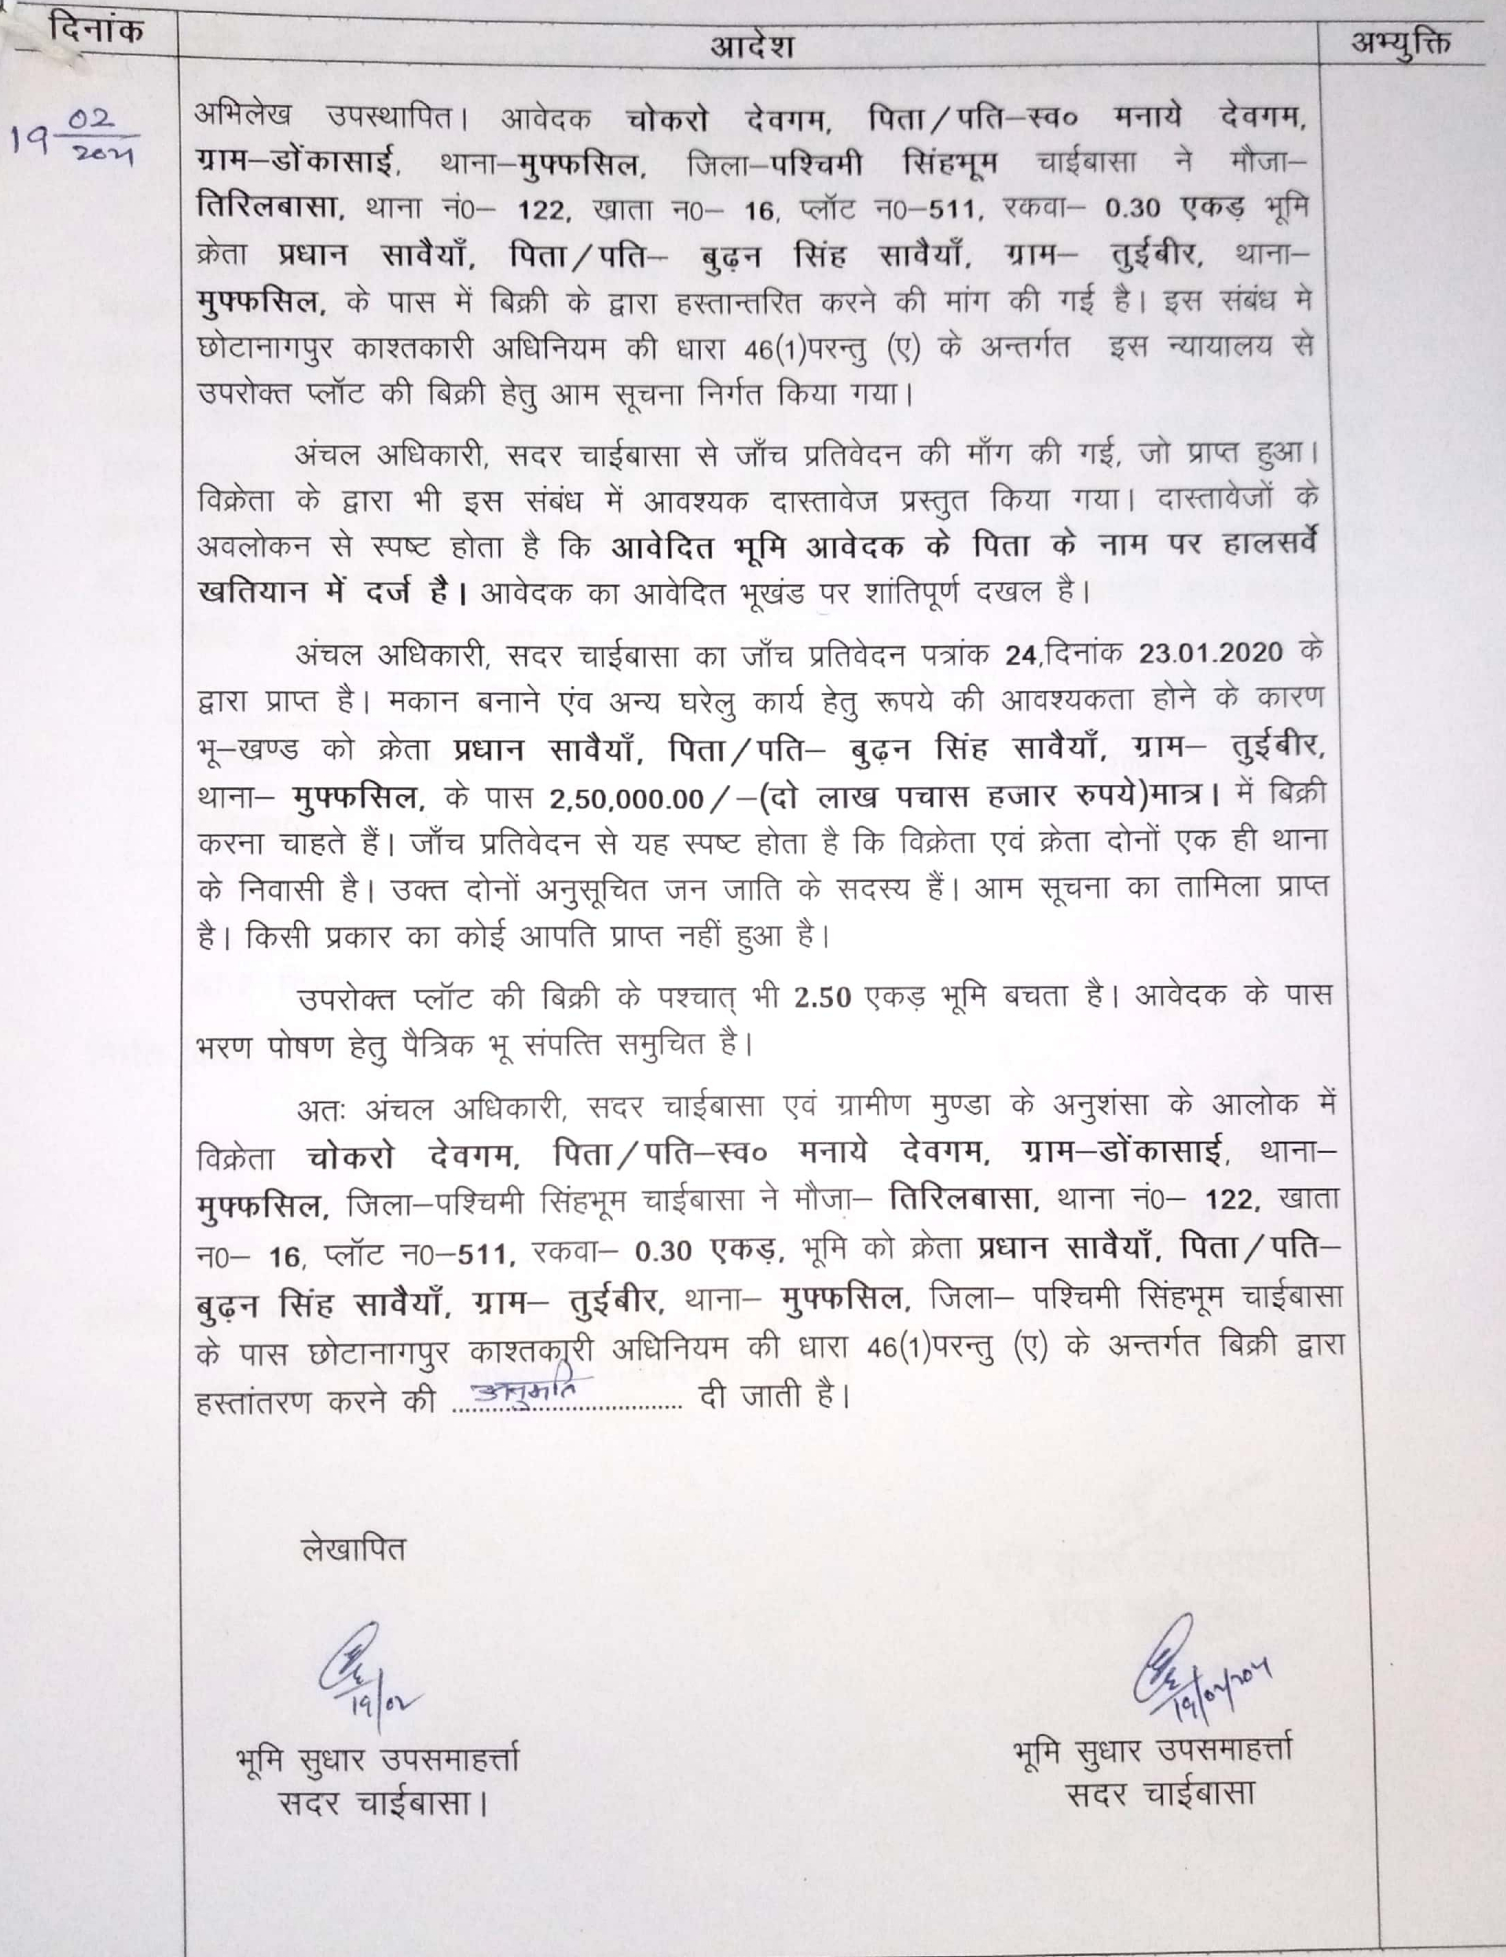 दिनांक
आदेश
अभ्युक्ति
19 02/2021
अभिलेख उपस्थापित। आवेदक चोकरो देवगम, पिता/पति–स्व० मनाये देवगम,
ग्राम–डोंकासाई, थाना–मुफ्फसिल, जिला–पश्चिमी सिंहभूम चाईबासा ने मौजा–
तिरिलबासा, थाना नं0– 122, खाता न0– 16, प्लॉट न0–511, रकवा– 0.30 एकड़ भूमि
क्रेता प्रधान सावैयाँ, पिता/पति– बुढ़न सिंह सावैयाँ, ग्राम– तुईबीर, थाना–
मुफ्फसिल, के पास में बिक्री के द्वारा हस्तान्तरित करने की मांग की गई है। इस संबंध मे
छोटानागपुर काश्तकारी अधिनियम की धारा 46(1)परन्तु (ए) के अन्तर्गत इस न्यायालय से
उपरोक्त प्लॉट की बिक्री हेतु आम सूचना निर्गत किया गया।
अंचल अधिकारी, सदर चाईबासा से जाँच प्रतिवेदन की माँग की गई, जो प्राप्त हुआ।
विक्रेता के द्वारा भी इस संबंध में आवश्यक दास्तावेज प्रस्तुत किया गया। दास्तावेजों के
अवलोकन से स्पष्ट होता है कि आवेदित भूमि आवेदक के पिता के नाम पर हालसर्वे
खतियान में दर्ज है। आवेदक का आवेदित भूखंड पर शांतिपूर्ण दखल है।
अंचल अधिकारी, सदर चाईबासा का जाँच प्रतिवेदन पत्रांक 24,दिनांक 23.01.2020 के
द्वारा प्राप्त है। मकान बनाने एंव अन्य घरेलु कार्य हेतु रूपये की आवश्यकता होने के कारण
भू–खण्ड को क्रेता प्रधान सावैयाँ, पिता/पति– बुढ़न सिंह सावैयाँ, ग्राम– तुईबीर,
थाना– मुफ्फसिल, के पास 2,50,000.00/–(दो लाख पचास हजार रुपये)मात्र। में बिक्री
करना चाहते हैं। जाँच प्रतिवेदन से यह स्पष्ट होता है कि विक्रेता एवं क्रेता दोनों एक ही थाना
के निवासी है। उक्त दोनों अनुसूचित जन जाति के सदस्य हैं। आम सूचना का तामिला प्राप्त
है। किसी प्रकार का कोई आपति प्राप्त नहीं हुआ है।
उपरोक्त प्लॉट की बिक्री के पश्चात् भी 2.50 एकड़ भूमि बचता है। आवेदक के पास
भरण पोषण हेतु पैत्रिक भू संपत्ति समुचित है।
अतः अंचल अधिकारी, सदर चाईबासा एवं ग्रामीण मुण्डा के अनुशंसा के आलोक में
विक्रेता चोकरो देवगम, पिता/पति–स्व० मनाये देवगम, ग्राम–डोंकासाई, थाना–
मुफ्फसिल, जिला–पश्चिमी सिंहभूम चाईबासा ने मौजा– तिरिलबासा, थाना नं0– 122, खाता
न0– 16, प्लॉट न0–511, रकवा– 0.30 एकड़, भूमि को क्रेता प्रधान सावैयाँ, पिता/पति–
बुढ़न सिंह सावैयाँ, ग्राम– तुईबीर, थाना– मुफ्फसिल, जिला– पश्चिमी सिंहभूम चाईबासा
के पास छोटानागपुर काश्तकारी अधिनियम की धारा 46(1)परन्तु (ए) के अन्तर्गत बिक्री द्वारा
हस्तांतरण करने की ....अनुमति.... दी जाती है।
लेखापित
19/02
19/02/2021
भूमि सुधार उपसमाहर्त्ता
सदर चाईबासा।
भूमि सुधार उपसमाहर्त्ता
सदर चाईबासा